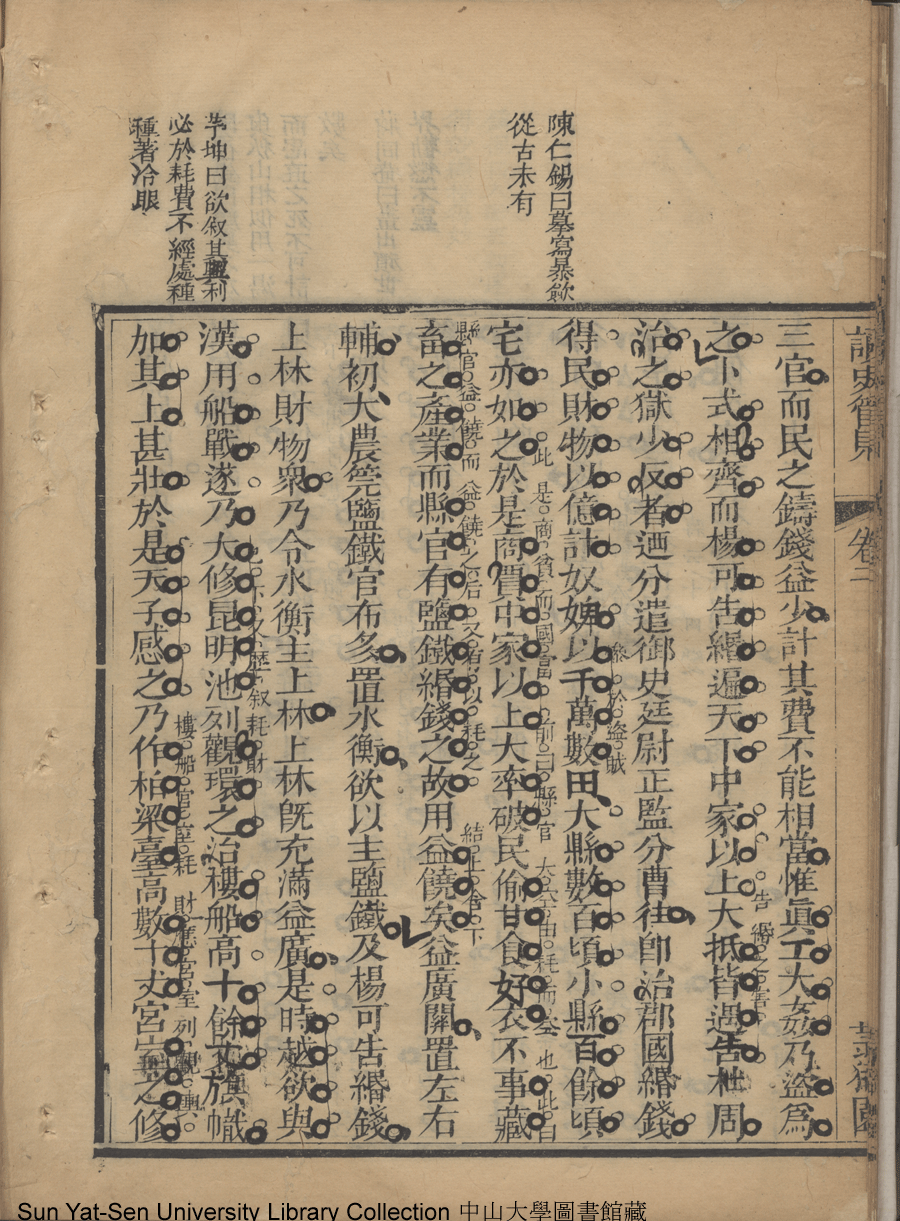 陳仁錫曰摹寫暴歛
從古未有
茅坤曰欲叙其興利
必於耗費不經處種
種著冷眼
卷二
三官而民之鑄錢益少計其費不能相當惟眞工大姦乃盜爲
之卜式相齊而楊可告緡遍天下中家以上大抵皆遇告杜周
告緡之害
治之獄少反者迺分遣御史廷尉正監分曹往卽治郡國緡錢
得民財物以億計奴婢以千萬數田大縣數百頃小縣百餘頃
叅於盜賊
宅亦如之於是商賈中家以上大率破民偷甘食好衣不事藏
此是商貧而國富前曰縣官大空由耗而空也此曰
畜之產業而縣官有鹽鐵緡錢之故用益饒矣益廣關置左右
縣官益饒而益饒之后又有以耗之結上含下
輔初大農筦鹽鐵官布多置水衡欲以主鹽鐵及楊可告緡錢
上林財物衆乃令水衡主上林上林旣充滿益廣是時越欲與
漢用船戰遂乃大修昆明池列觀環之治樓船高十餘丈旗幟
已下又歷叙耗財
加其上甚壯於是天子感之乃作柏梁臺高數十丈宮室之修
樓船官室耗財應宮室列觀輿
Sun Yat-Sen University Library Collection 中山大學圖書館藏